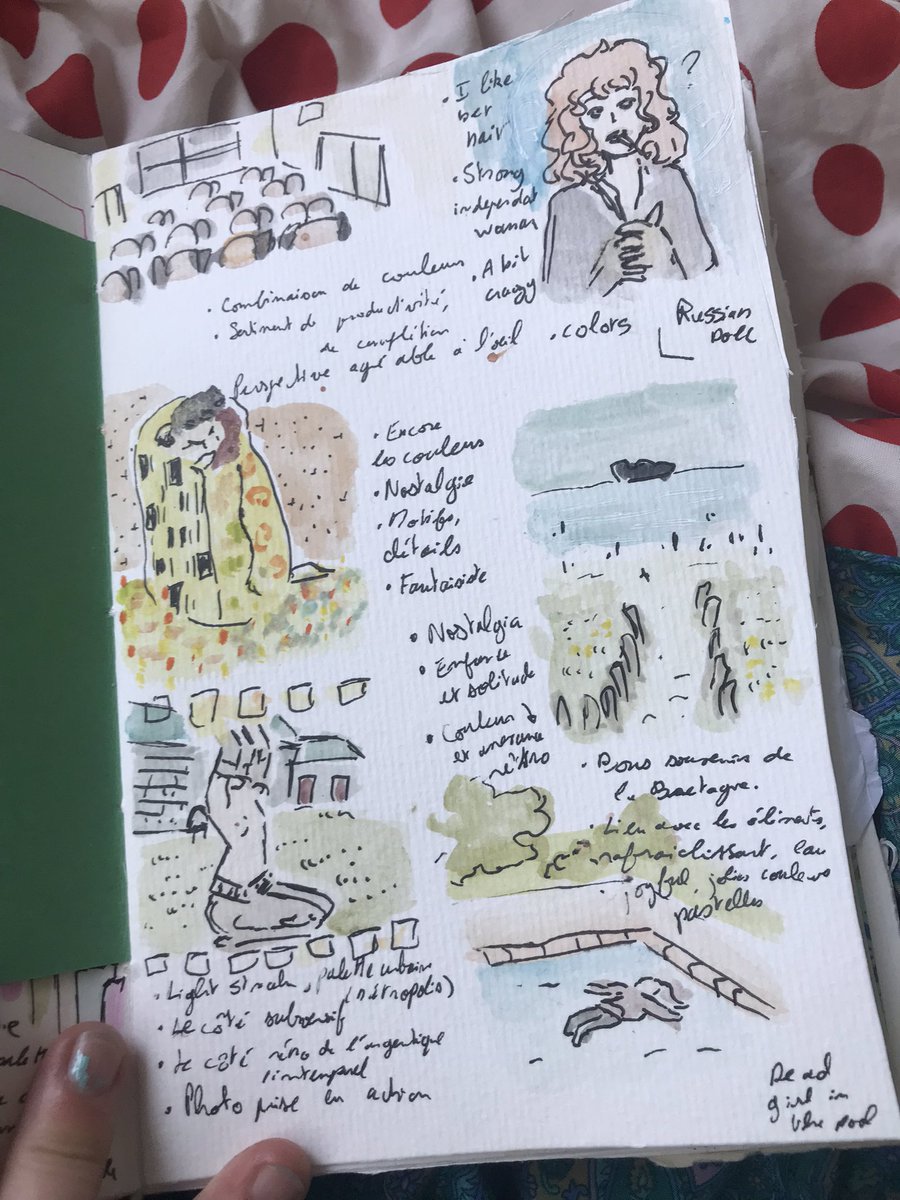 • I like
her
hair
• Strong
independat
woman
• A bit
crazy
• colors
?
Russian
Doll
• Combinaison de couleurs
• Sentiment de productivité,
de complétion
Perspective agréable à l'oeil
• Encore
les couleurs
• Nostalgie
• Motifs,
détails
• Fantaisiste
• Nostalgia
• Enfance
et solitude
• Couleurs
et
rétro
• Bons souvenirs de
la Bretagne.
• Lien avec les éléments,
rafraichissant, eau
joyful, jolies couleurs
pastelles
• Light, palette urbaine
(métropolis)
• Le côté subversif
• Le côté rétro de l'argentique
intemporel
• Photo prise en action
Dead
girl in
the pool